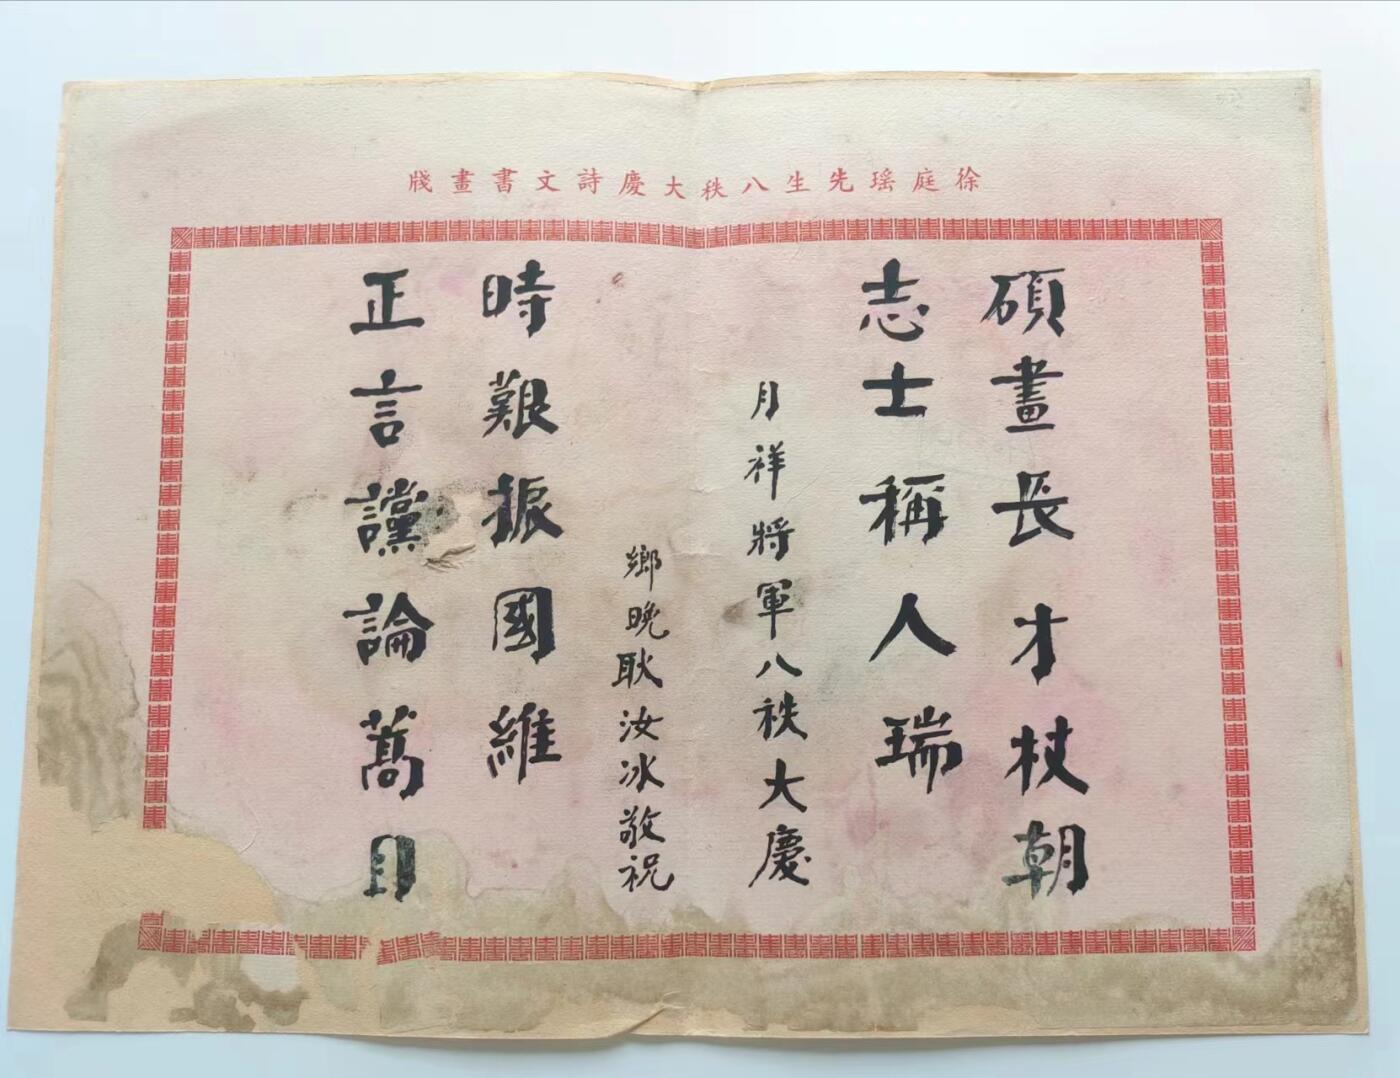 徐庭瑤先生八秩大慶詩文書畫牋
碩畫長才杖朝
志士稱人瑞
月祥將軍八秩大慶
鄉晚耿汝冰敬祝
時艱振國維
正言讜論蒿目